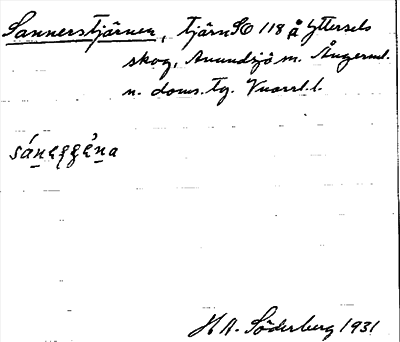 Sannerstjärnen, tjärn SO 118 å Yttersels
skog, Anundsjö sn. Ångerml.
n. doms. tg. Vuorrl. l.
sánęʂʂę̀na
H A. Söderberg 1931